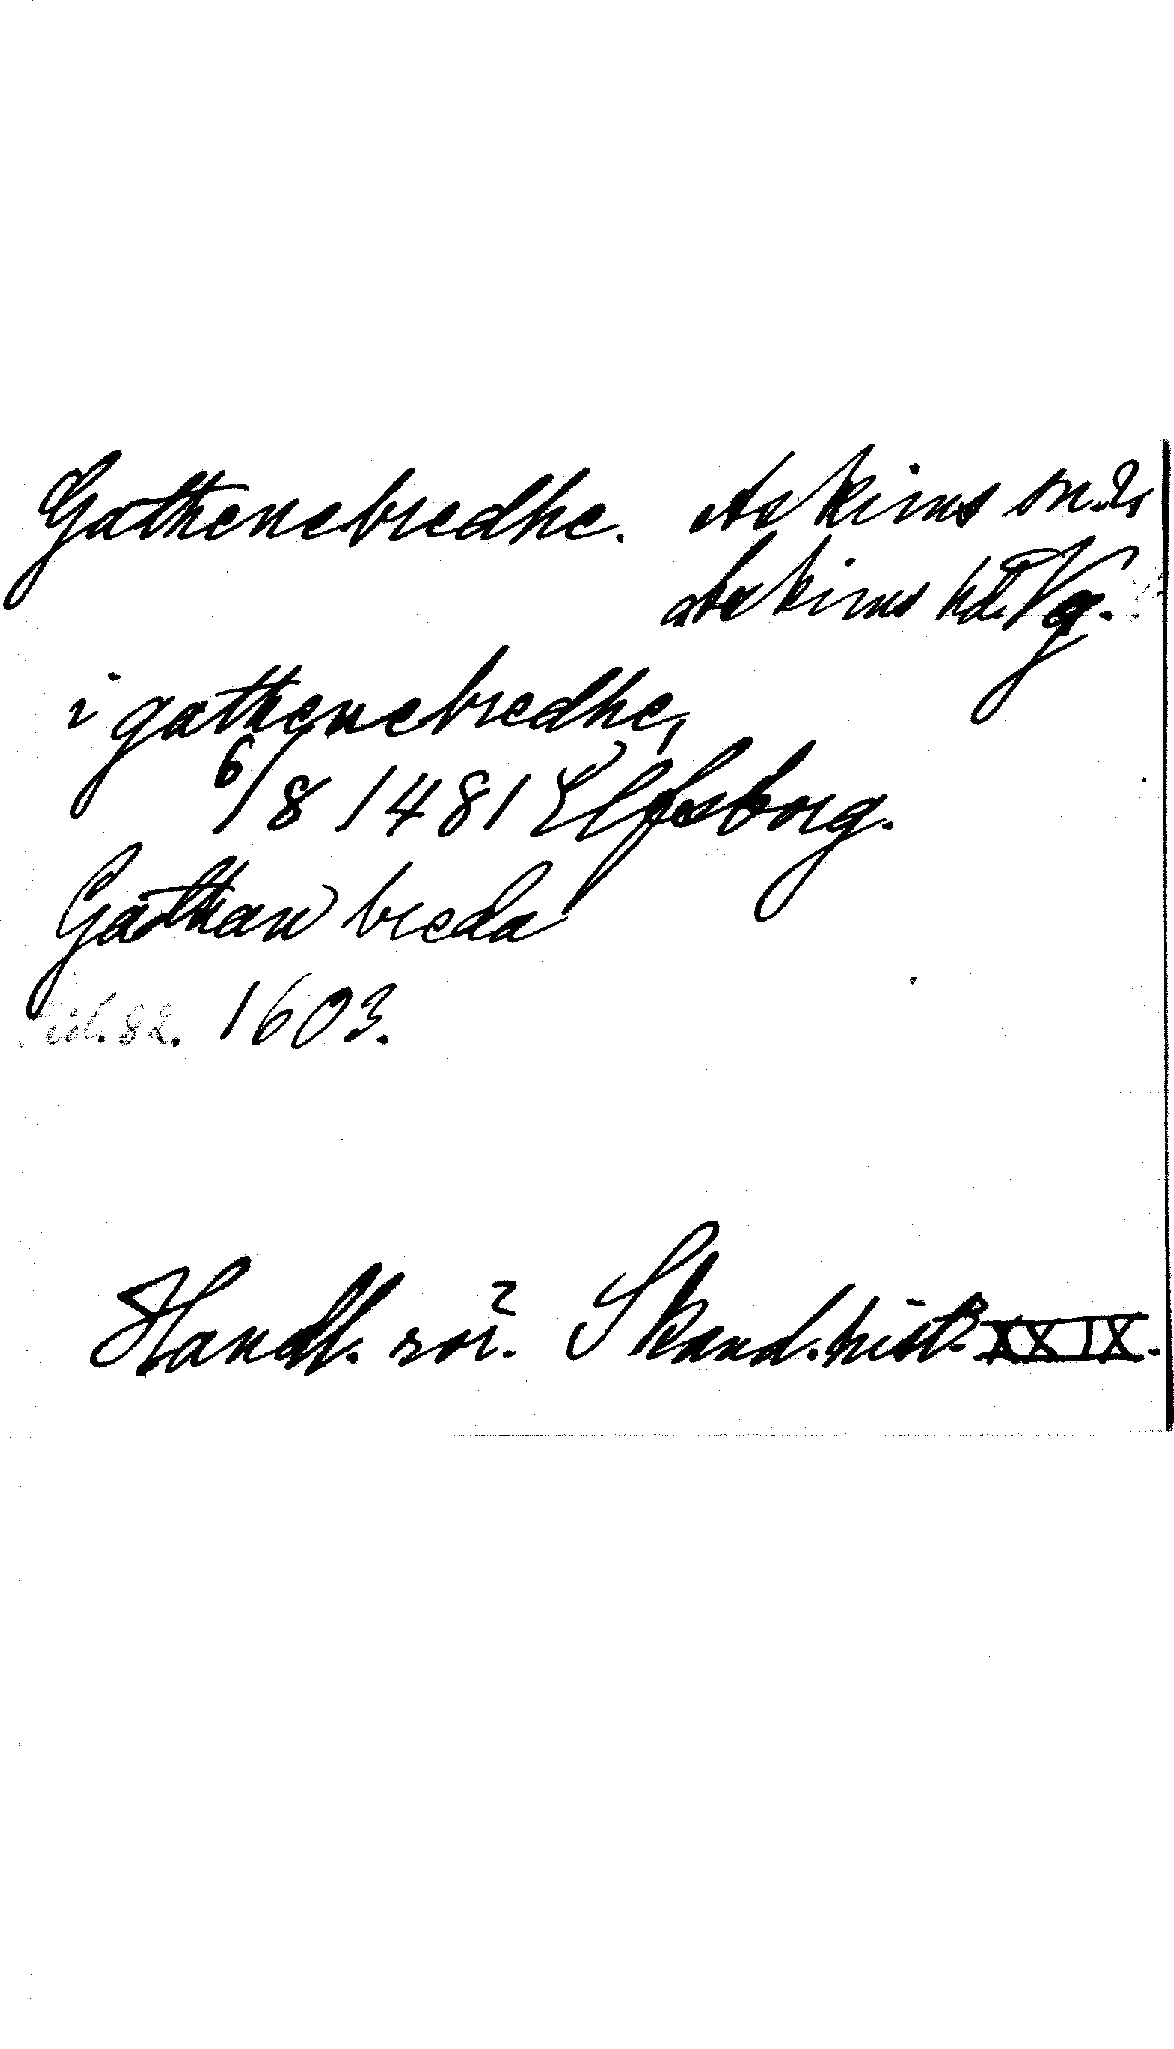 Gathenebredhe. Askims sn. ?,
Askims hd. Vg.
i gathenebredhe,
6/8 1481 Elfsborg.
Gathan breda
sid. 82. 1603.
Handl. rör. Skand. hist. XXIX.